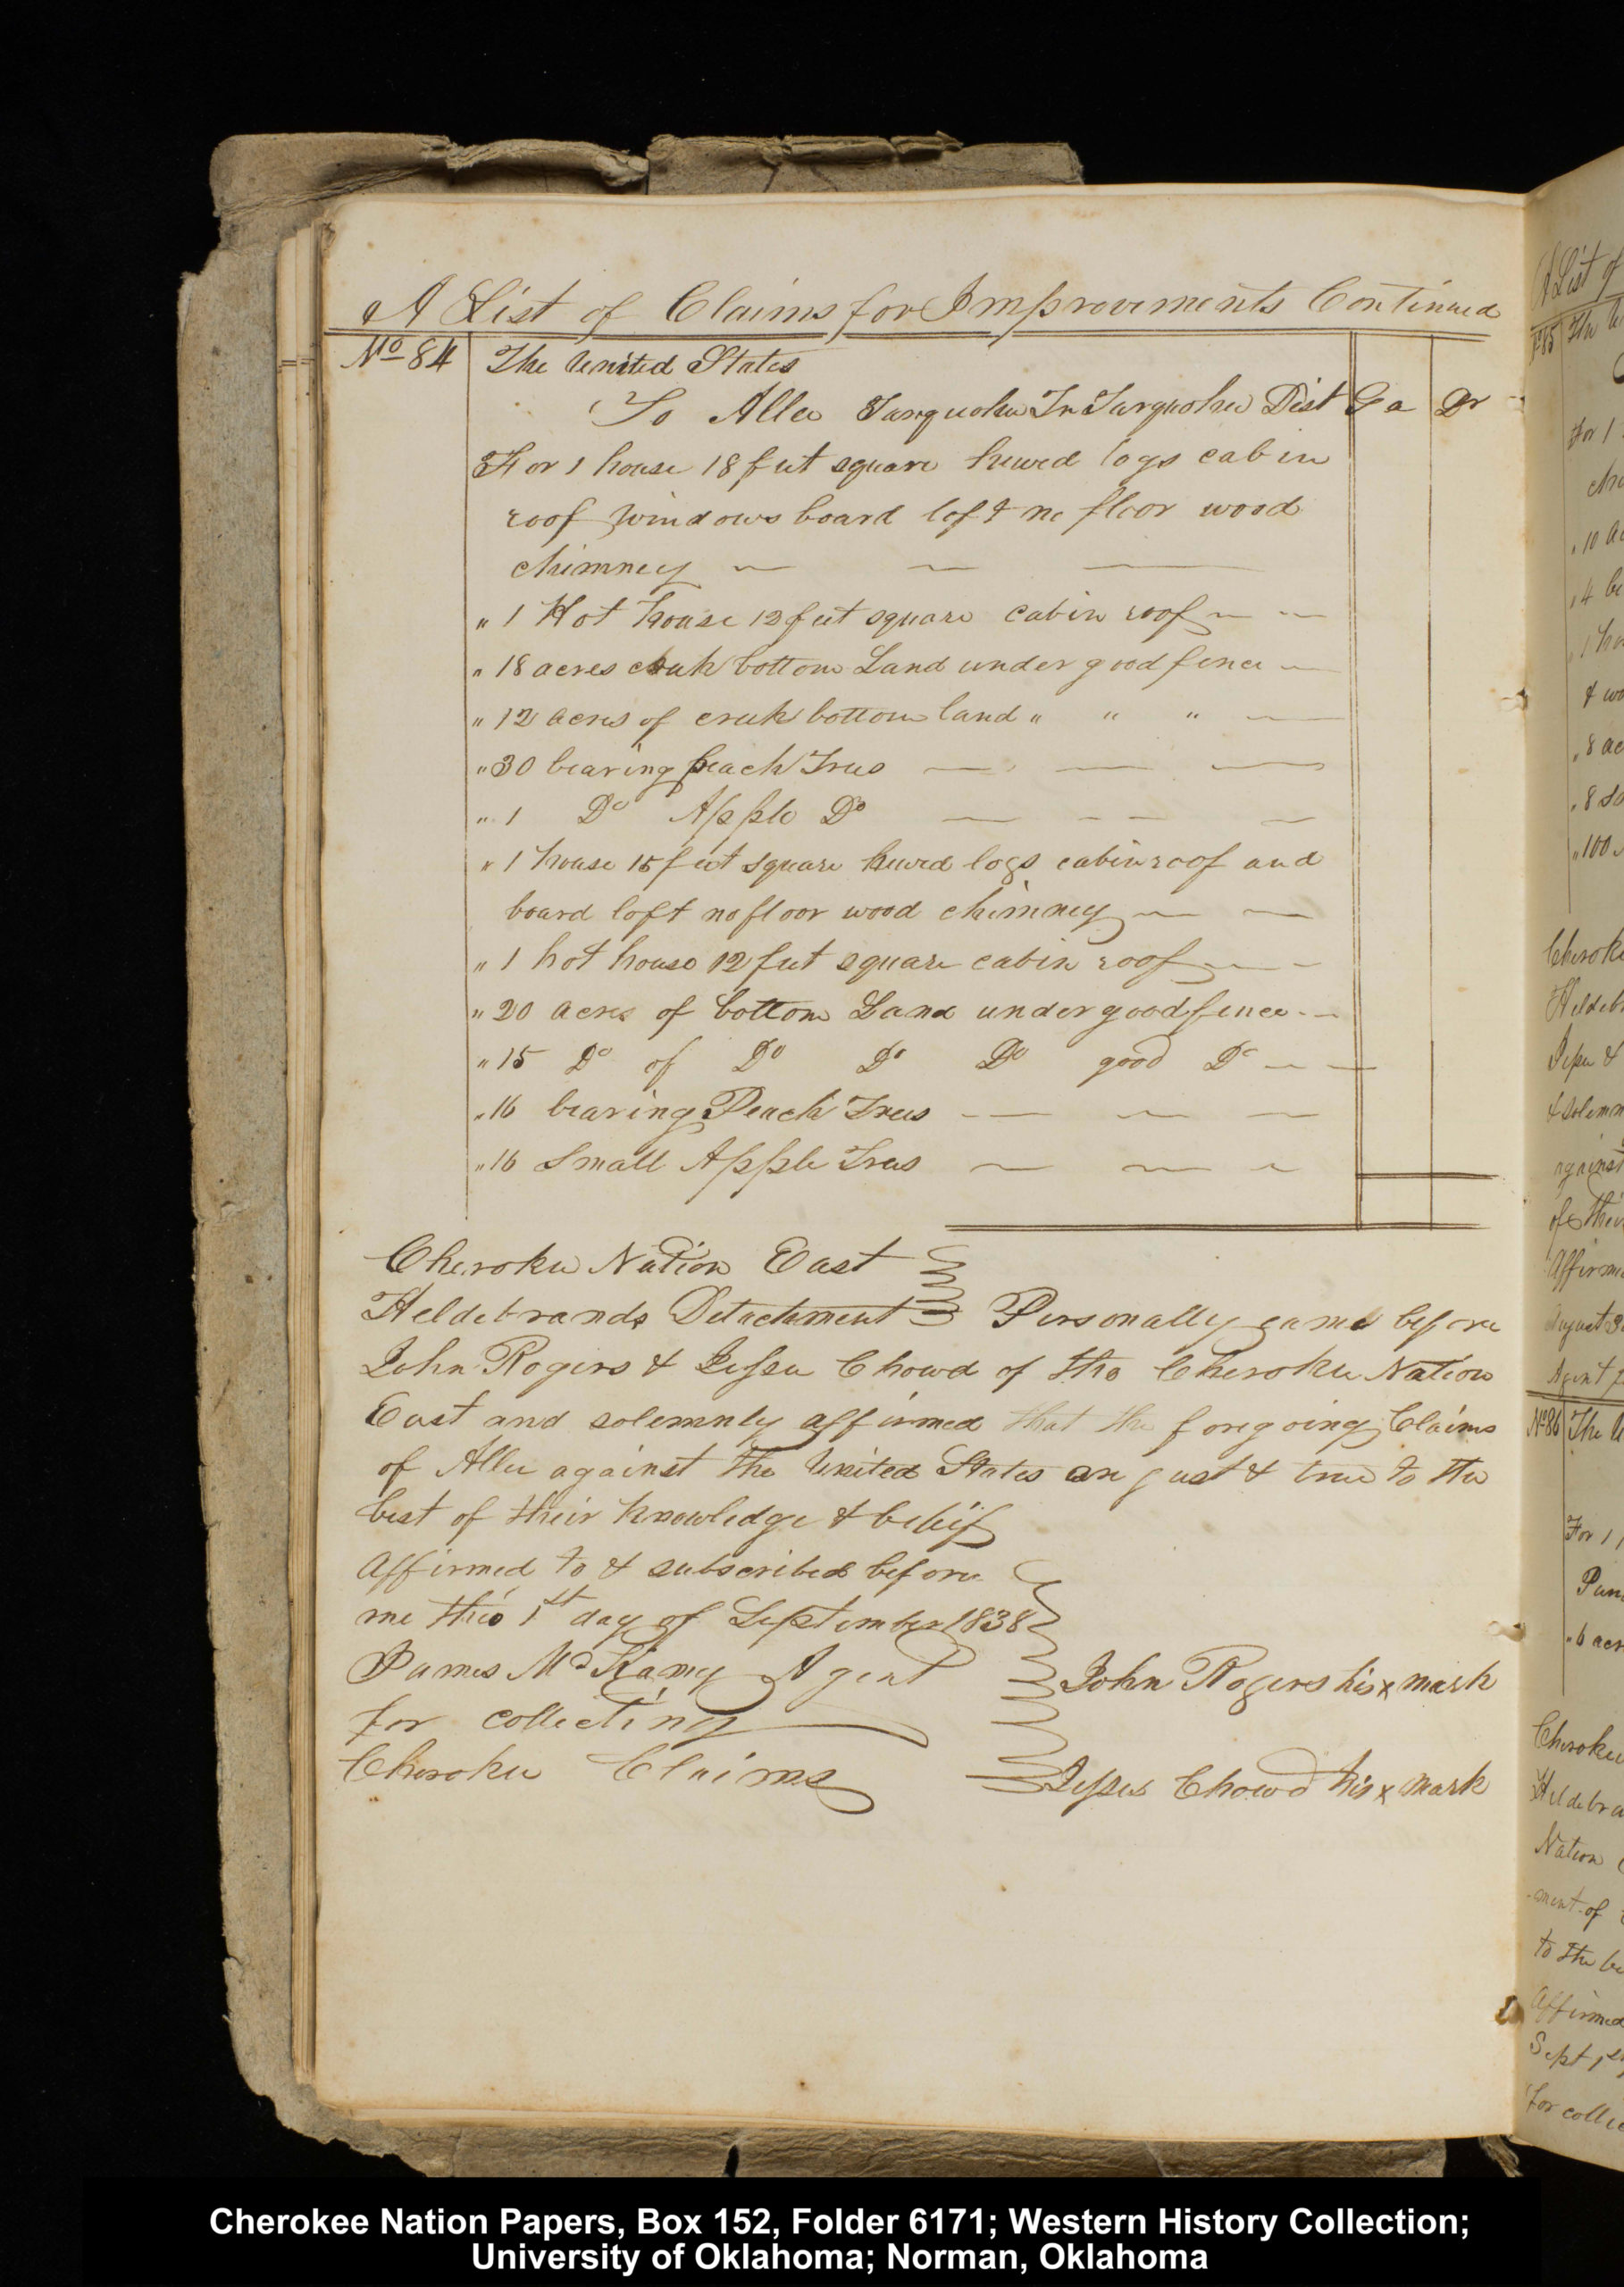 A List of Claims for Improvements Continued
No 84 The United States
To Allee Tarquohee In Tarquohee Dist Ga Dr
For 1 house 18 feet square hewed logs cabin
roof windows board loft no floor wood
chimney
" 1 Hot house 12 feet square cabin roof
" 18 acres creek bottom Land under good fence
" 12 acres of creek bottom land " " "
" 30 bearing peach Trees
" 1 Do Apple Do
" 1 house 15 feet square hewed logs cabin roof and
board loft no floor wood chimney
" 1 hot house 12 feet square cabin roof
" 20 acres of bottom Land under good fence
" 15 Do of Do Do Do good Do
" 16 bearing Peach Trees
" 16 Small Apple Trees
Cherokee Nation East
Heldebrands Detachment Personally came before
John Rogers & Jessee Chowd of the Cherokee Nation
East and solemnly affirmed that the foregoing Claims
of Allee against the United States are just & true to the
best of their knowledge & beleif
Affirmed to & subscribed before
me this 1st day of September 1838
James McKamy Agent
for collecting
Cherokee Claims
John Rogers his x mark
Jessee Chowd his x mark
A List of
No 85 The
For 1
" 10
" 4
" 8
" 8
" 100
Cheroke
Heldeb
Jessee &
& solemn
against
of their
Affirme
August
Agent
No 86 The U
For 1
" 6 acr
Cherokee
Heldebra
Nation
-ment of
to the be
Affirmed
Sept 1st
for colle
Cherokee Nation Papers, Box 152, Folder 6171; Western History Collection;
University of Oklahoma; Norman, Oklahoma